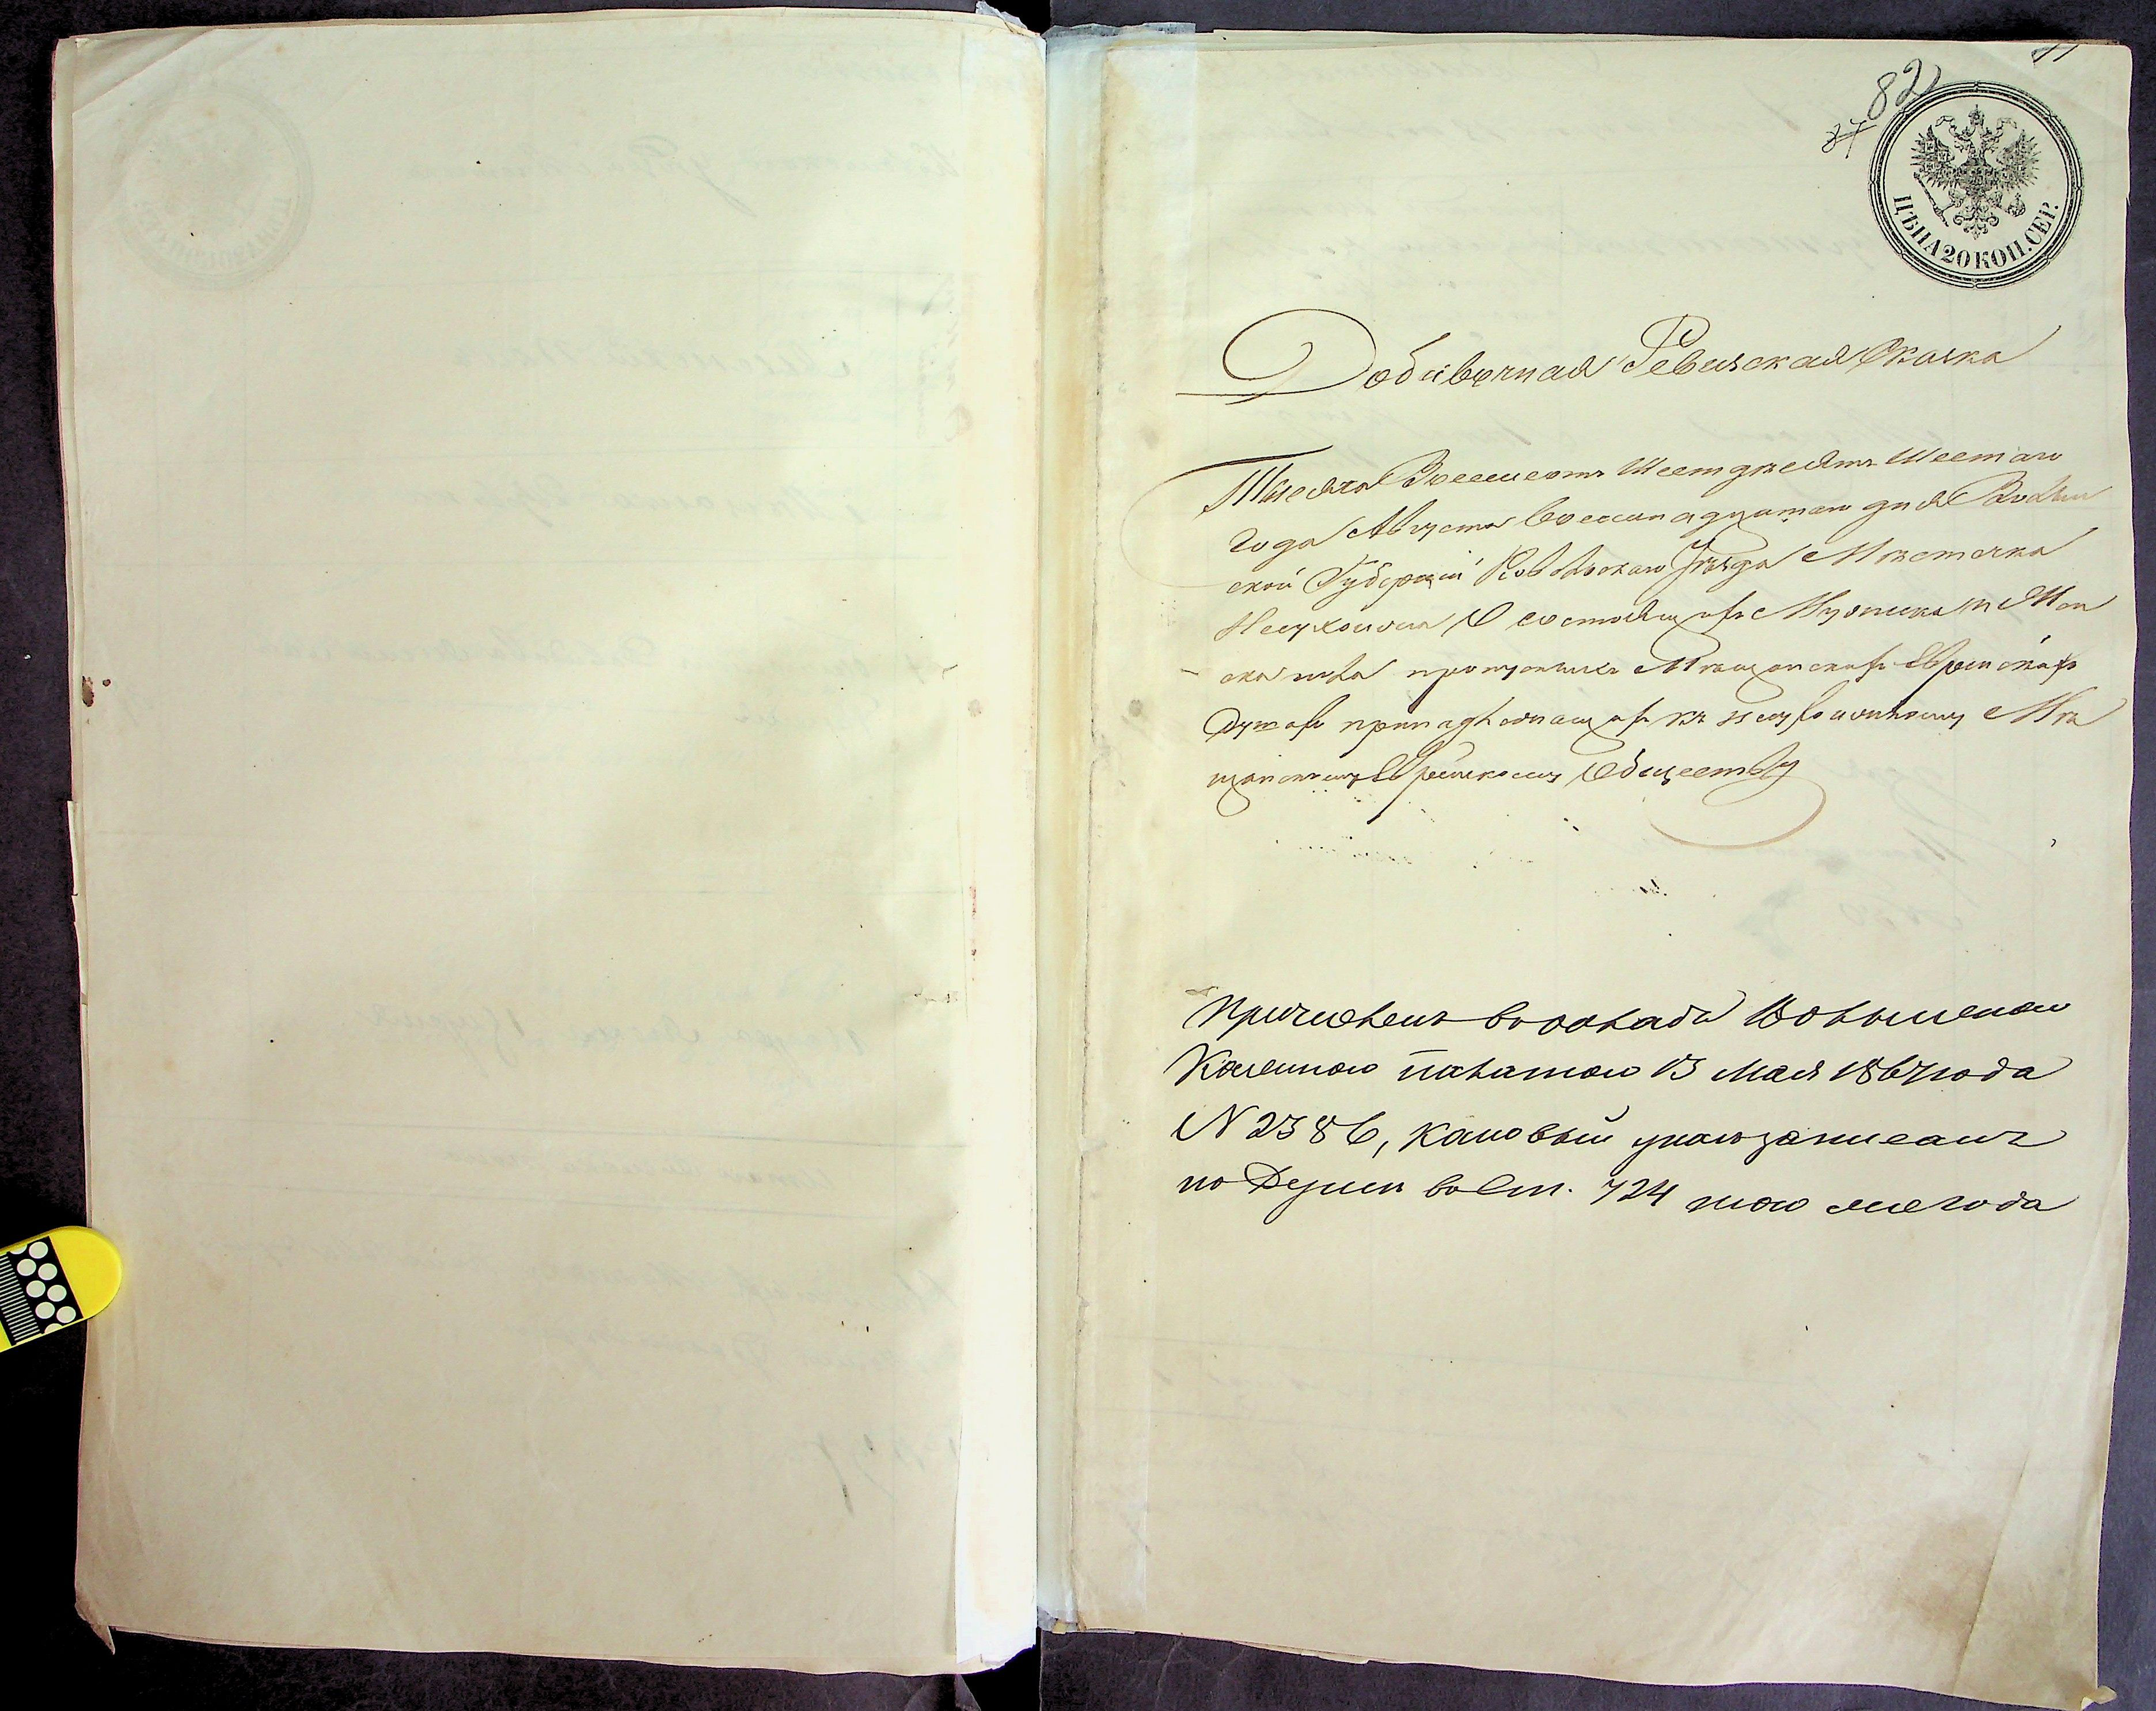 82
ЦѢНА 20 КОП. СЕР.
Добавочная Ревизская Сказка
Тысяча Восемсотъ Шестдесятъ Шестаго
года Августа восемнадцатого дня Волын
ской Губерніи Ковельскаго Уѣзда Мѣстечка
Несухоижа О состоящихъ Мужеска и Жен
ска пола Мѣщанскихъ Еврейскихъ
Душахъ принадлежащихъ къ Несухоижскому Мѣ
щанскому Еврейскому Обществу
Причисленъ во окладъ Волынскою
Казенною палатою 13 Мая 1867 года
N 2386, каковый указъ записанъ
по Думѣ во ст. 724 того же года